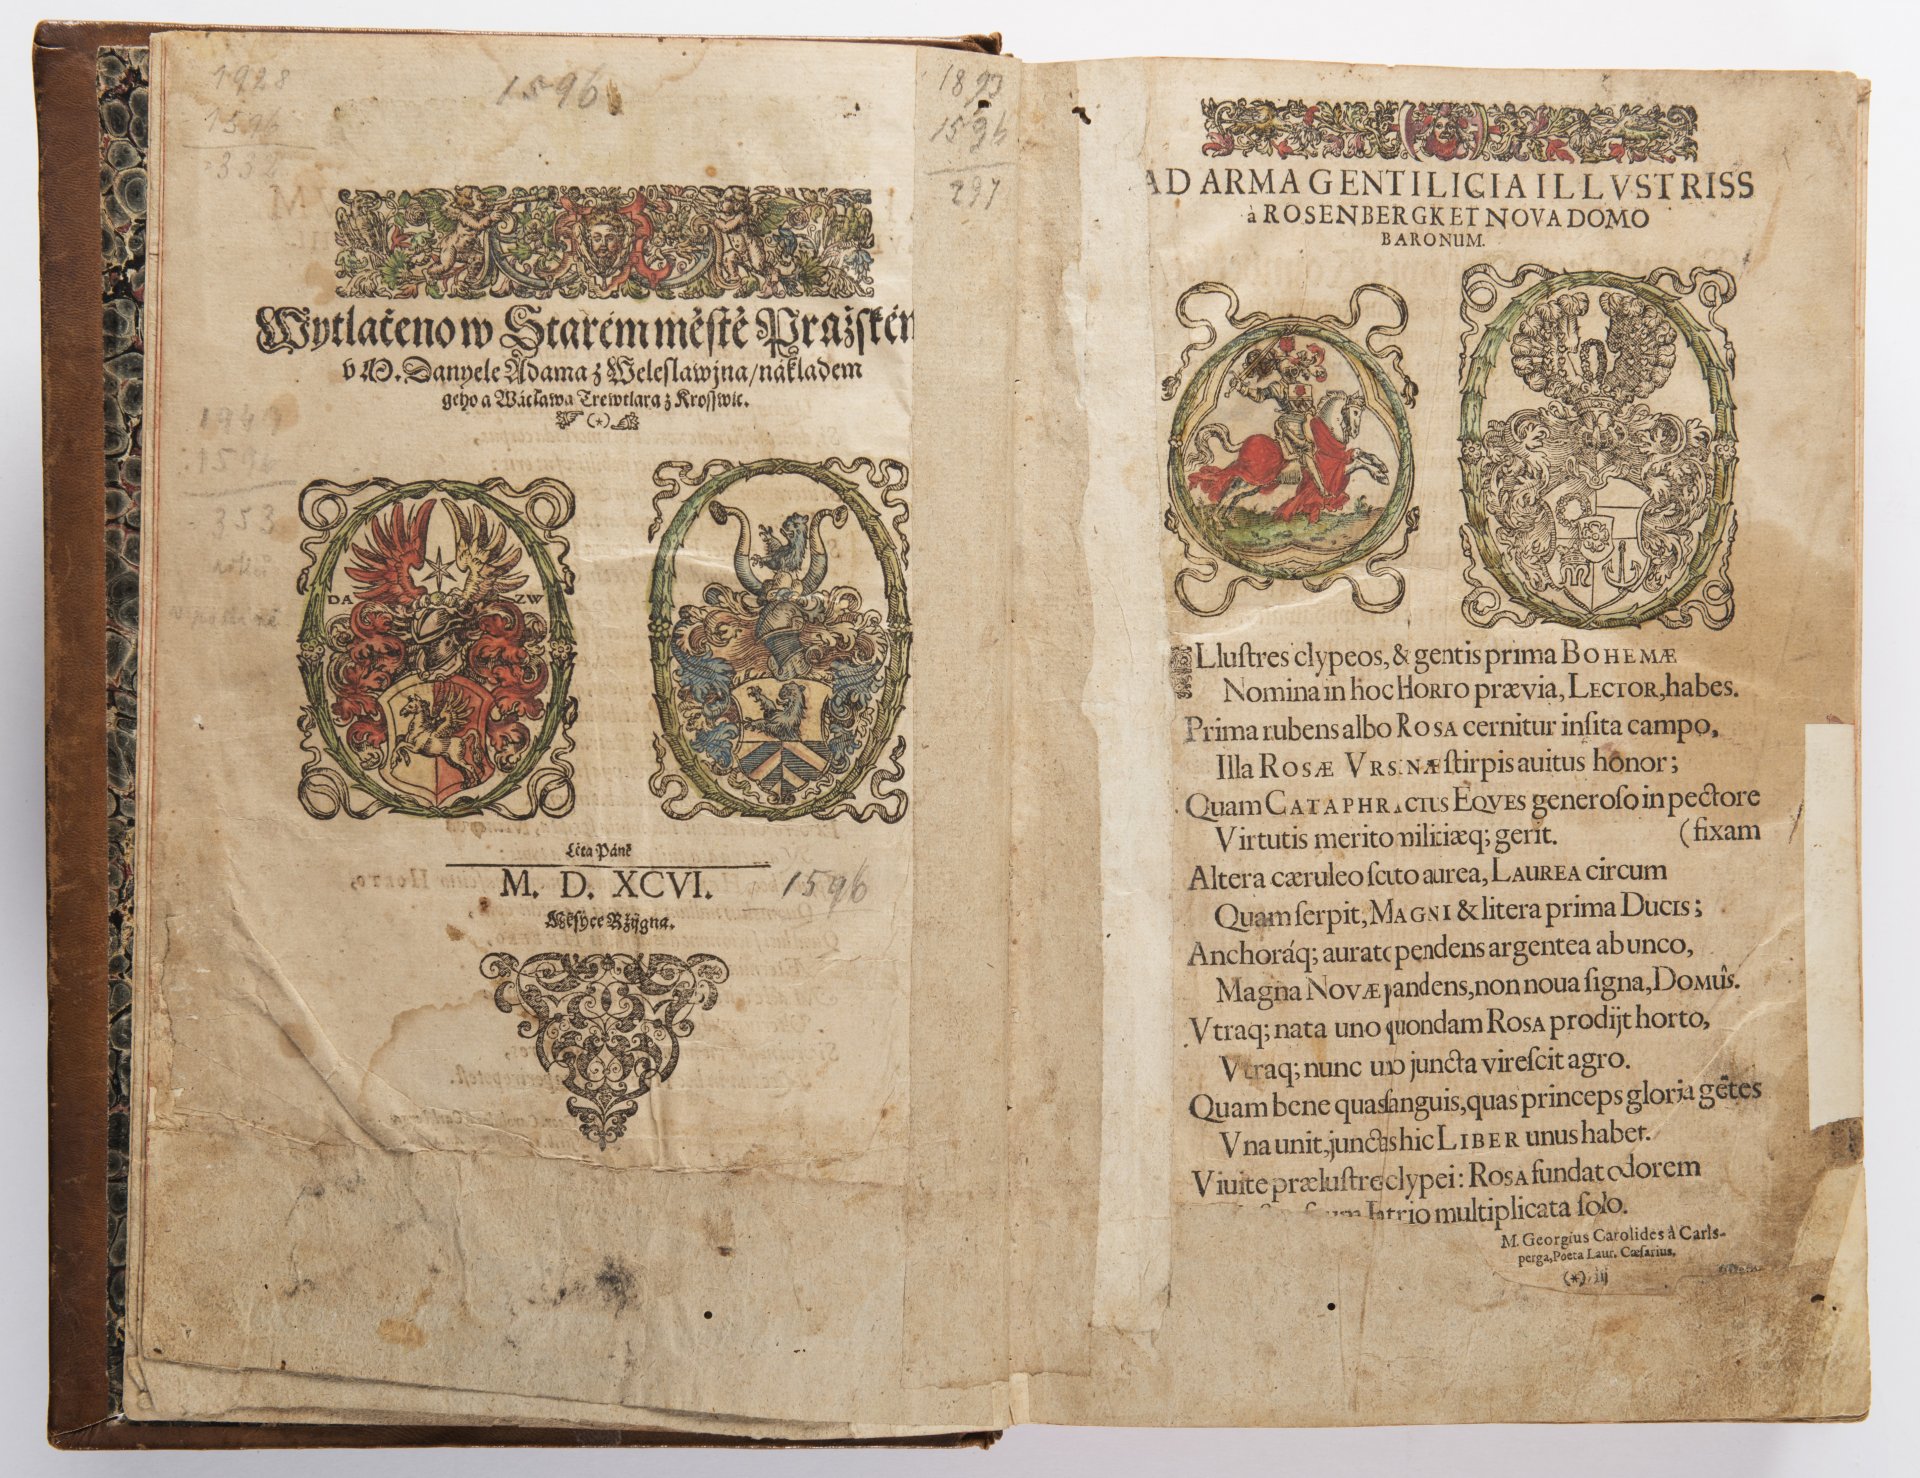 1928
1596
332
1596
1893
1596
297
Wytlačeno w Starém městě Pražském
v M. Danyele Adama z Weleslawjna/nákladem
geho a Wácława Trewtlara z Krosswic.
(*)
1949
1596
353
DA ZW
Léta Páně
M. D. XCVI. 1596
Měsýce Ržýgna.
AD ARMA GENTILICIA ILLVSTRISS
à ROSENBERGK ET NOVA DOMO
BARONUM.
M
ILluſtres clypeos, & gentis prima BOHEMÆ
Nomina in hoc HORTO prævia, LECTOR, habes.
Prima rubens albo ROSA cernitur inſita campo,
Illa ROSÆ VRSINÆ ſtirpis auitus honor;
Quam CATAPHRACTUS EQVES generoſo in pectore
Virtutis merito militiæq; gerit. (fixam
Altera cæruleo ſcuto aurea, LAUREA circum
Quam ſerpit, MAGNI & litera prima DUCIS;
Anchoráq; aurato pendens argentea ab unco,
Magna NOVÆ pandens, non noua ſigna, DOMÛS.
Vtraq; nata uno quondam ROSA prodijt horto,
Vtraq; nunc uno juncta vireſcit agro.
Quam bene qua ſanguis, quas princeps gloria gētes
Vna unit, junctas hic LIBER unus habet.
Viuite præluſtres clypei: ROSA fundat odorem
Patrio multiplicata ſolo.
M. Georgius Carolides à Carls-
perga, Poëta Laur. Cæſarius.
(*) iij